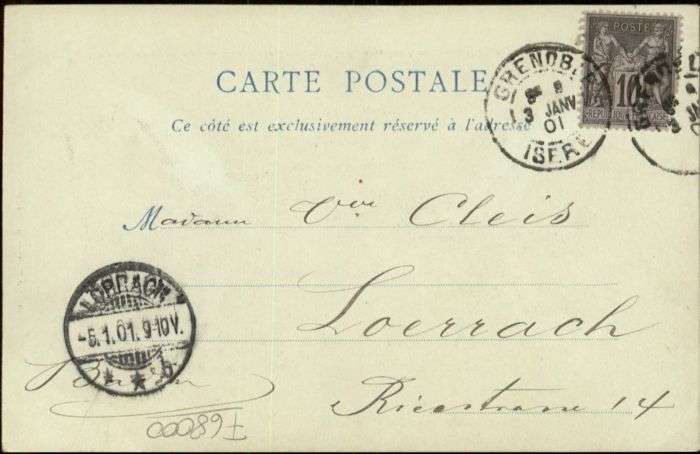 CARTE POSTALE
Ce côté est exclusivement réservé à l'adresse
POSTE
10
REPUBLIQUE FRANCAISE
GRENOBLE
3 JANV
01
ISERE
Madame Vve Cleis
Loerrach
LÖRRACH
-5.1.01.9-10V.
* * b
Baden
Ricastrasse 14
F68000